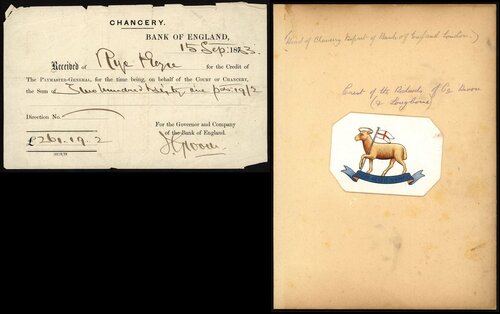 CHANCERY.
BANK OF ENGLAND,
15 Sep: 1883.
Received of Rye & Eyre for the Credit of
THE PAYMASTER-GENERAL, for the time being, on behalf of the COURT OF CHANCERY,
the Sum of Two hundred & sixty one pds: 19/2
Direction No.
For the Governor and Company
of the Bank of England.
£261.19.2
(Kind of Chancery Deposit of Bank of England London)
Crest of the of Co Devon
(& Longbone)